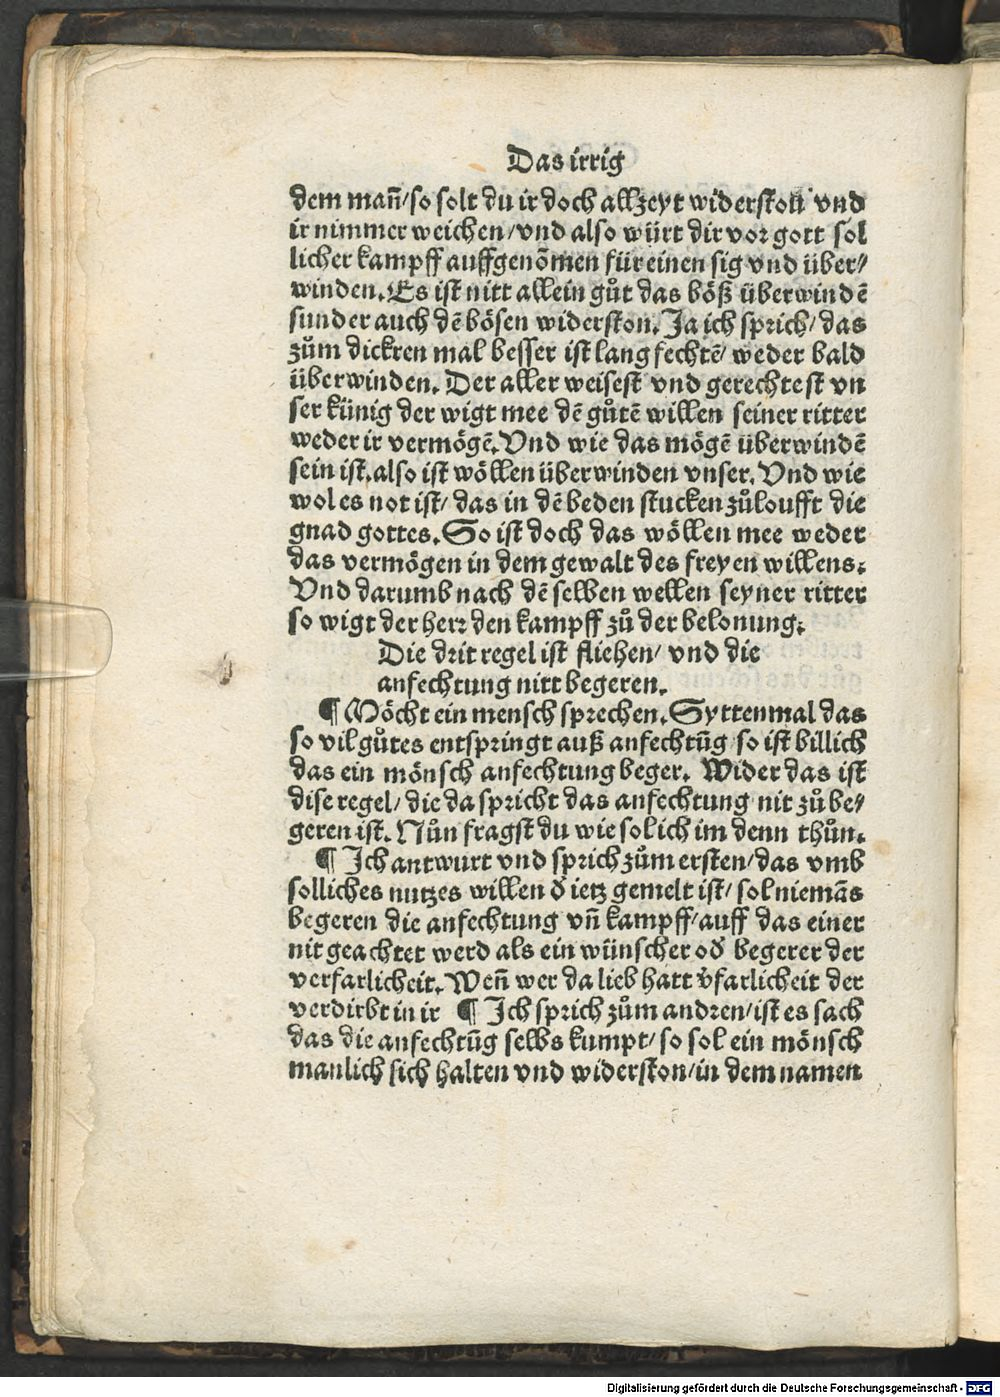 Das irrig
dem mañ/so solt du ir doch allzeyt widerston vnd
ir nimmer weichen/vnd also würt dir vor gott sol
licher kampff auffgenõmen für einen sig vnd über/
winden. Es ist nitt allein gůt das böß überwindẽ
sunder auch dẽ bösen widerston. Ja ich sprich/das
zům dickren mal besser ist lang fechtẽ/ weder bald
überwinden. Der aller weisest vnd gerechtest vn
ser künig der wigt mee dẽ gůtẽ willen seiner ritter
weder ir vermögẽ. Vnd wie das mögẽ überwindẽ
sein ist. also ist wöllen überwinden vnser. Vnd wie
wol es not ist/ das in dẽ beden stucken zůloufft die
gnad gottes. So ist doch das wöllen mee weder
das vermögen in dem gewalt des freyen willens.
Vnd darumb nach dẽ selben wellen seyner ritter
so wigt der herr den kampff zů der belonung.
Die drit regel ist fliehen/ vnd die
anfechtung nitt begeren.
¶ Möcht ein mensch sprechen. Syttenmal das
so vil gůtes entspringt auß anfechtũg/so ist billich
das ein mönsch anfechtung beger. Wider das ist
dise regel/ die da spricht das anfechtung nit zů be/
geren ist. Nůn fragst du wie sol ich im denn thůn.
¶ Ich antwurt vnd sprich zům ersten/das vmb
solliches nutzes willen d̕ ietz gemelt ist/ sol niemãs
begeren die anfechtung vñ kampff/auff das einer
nit geachtet werd als ein wünscher od̕ begerer der
verfarlicheit. Weñ wer da lieb hatt v̕farlicheit der
verdirbt in ir ¶ Ich sprich zům andren/ist es sach
das die anfechtũg selbs kumpt/ so sol ein mönsch
manlich sich halten vnd widerston/in dem namen
Digitalisierung gefördert durch die Deutsche Forschungsgemeinschaft - DFG